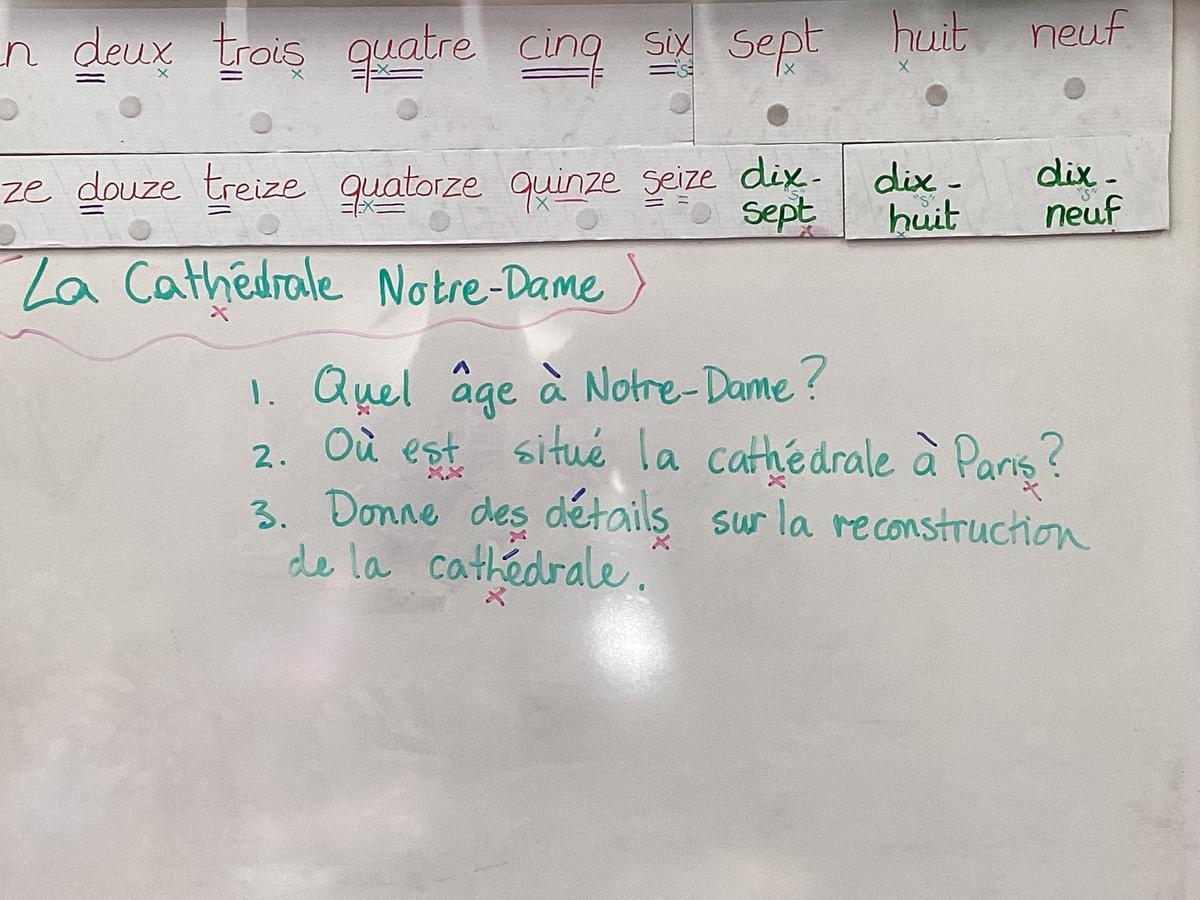 n deux trois quatre cinq six sept huit neuf
ze douze treize quatorze quinze seize dix-sept dix-huit dix-neuf
La Cathédrale Notre-Dame
1. Quel âge à Notre-Dame?
2. Où est situé la cathédrale à Paris?
3. Donne des détails sur la reconstruction
de la cathédrale.